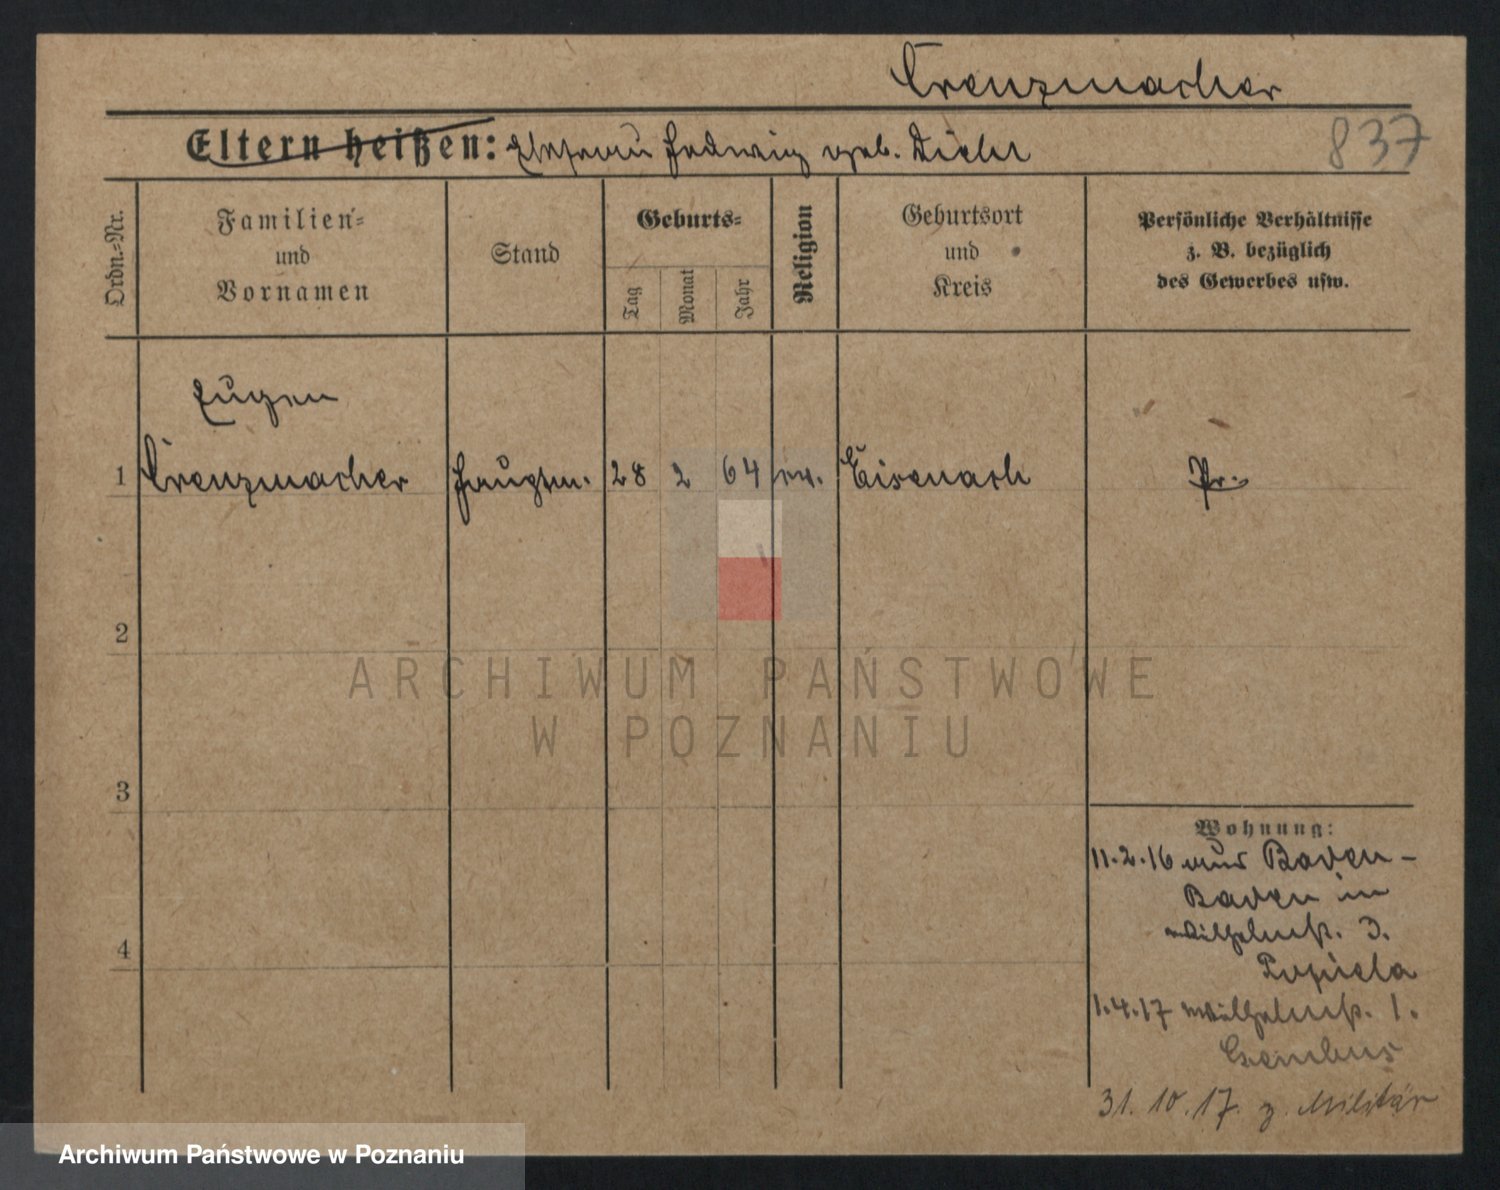 Creuzmacher
Eltern heißen: Ehefrau Hedwig geb. Diehl
837
Ordn.-Nr.
Familien- und Vornamen
Stand
Geburts-
Tag
Monat
Jahr
Religion
Geburtsort und Kreis
Persönliche Verhältnisse z. B. bezüglich des Gewerbes usw.
Eugen
1 Creuzmacher Hauptm. 28 2 64 ev. Eisenach Pr.
2
3
4
Wohnung:
11.2.16 aus Baden-
Baden in
Wilhelmstr. 3.
Popiela
1.4.17 Wilhelmstr. 1.
31.10.17. z. Militär
ARCHIWUM PAŃSTWOWE
W POZNANIU
Archiwum Państwowe w Poznaniu